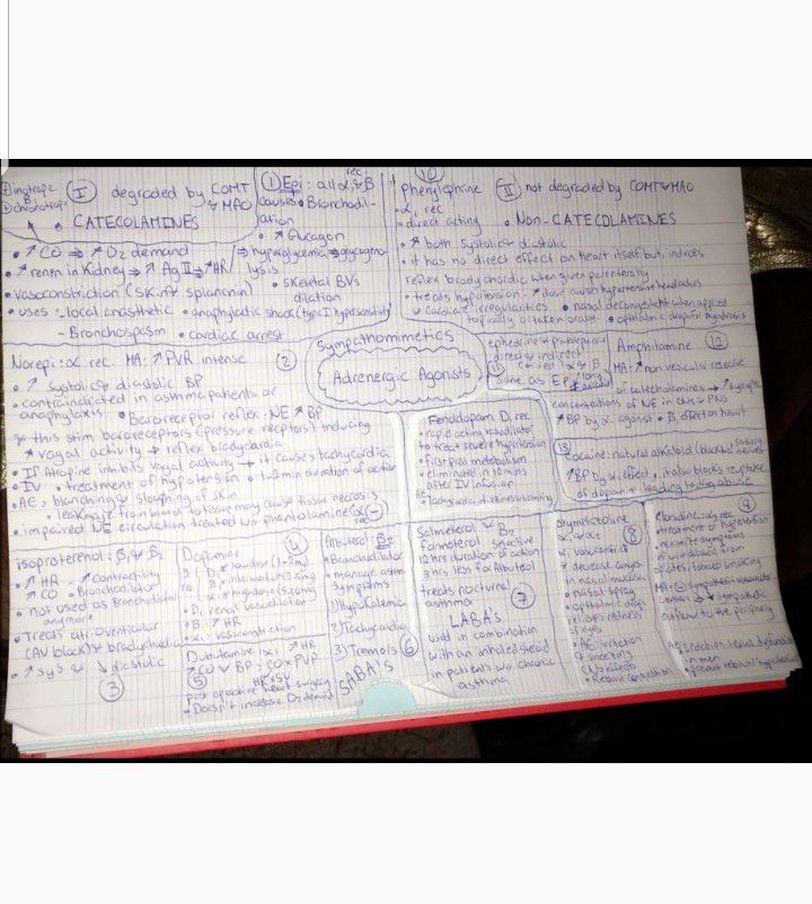 + inotrope
+ chronotrope
I degraded by COMT
& MAO
• CATECOLAMINES
• ↗ CO ⇒ ↗ O2 demand
• ↗ renin in kidney ⇒ ↗ Ag II ⇒ ↗ HR
• vasoconstriction (skin & splancnin)
• uses: - local anasthetic • anaphylactic shock (type I hypersensitivity)
- Bronchospasm • cardiac arrest
1 Epi: all α, & β rec
causes • Bronchodil-
ation
• ↗ Glucagon
⇒ hyperglycemia ⇒ glycogeno-
lysis
• skeletal BVs
dilation
10
phenylephrine
• α1 rec
• direct acting
II not degraded by COMT & MAO
• Non-CATECOLAMINES
• ↗ both systolic & diastolic
• it has no direct effect on Heart itself but, induces
reflex bradychordic when given parenterally
• treats hypotension • ↗ dose causes hypertensive headaches
& cardiac irregularities • nasal decongestent when applied
topically or taken orally
Sympathomimetics
Adrenergic Agonists
Norepi: α rec. MA: ↗ PVR intense 2
• ↗ systolic & diastolic BP
• contraindicated in asthma patients or
anaphylaxis • Baroreceptor reflex: NE ↗ BP
& this stim baroreceptors (pressure receptors) inducing
↗ vagal activity → reflex bradycardia
• If Atropine inhibits vagal activity → it causes tachycardia
• IV • treatment of hypotension • 1-2 min duration of action
• AE: blanching & sloughing of skin
• leakage from blood to tissue may cause tissue necrosis
• impaired NE circulation treated w/ phentolamine (α rec -)
ephedine & pseudoepi
direct & indirect
11
same as EPI
Amphitamine 12
MA: ↗ non vesicular release
of catecholamines → ↗ synaptic
concentrations of NE in CNS & PNS
↗ BP by α1 agonist • β1 effect on heart
13
cocaine: natural alkaloid
↗ BP by α1 effect, it also blocks reuptake
of dopamine leading to drug abuse
Fenoldopam D1 rec
• rapid acting vasodilator
to treat severe hypertension
• first pass metabolism
• eliminated in 10 mins
after IV infusion
AE:
isoproterenol: β1 & β2
• ↗ HR • ↗ Contractility
• ↗ CO • Bronchodilator
• not used as Bronchodilator
anymore
• Treats atrioventricular
(AV block) & bradycardia
• ↗ sys & ↘ diastolic
3
Dopamine 4
• D1 renal vasodilation
• β1: ↗ HR
• α1: vasoconstriction
Dobutamine
5
post operative heart surgery
• Doesn't increase O2 demand
Albuterol: β2
• Bronchodilator
• manage asthma
symptoms
1) Hypokalemia
2) Tachycardia
3) Tremors 6
SABA'S
Salmeterol & β2
formoterol selective
12 hrs duration of action
3 hrs less for Albuterol
treats nocturnal
asthma 7
LABA's
used in combination
with an inhaled steroid
in patients w/ chronic
asthma
Oxymetazoline
α1 & α2 8
α1 vasoconstricts
& decreases
in nasal mucosa
• nasal spray
• opthalmic drops
relieves redness
of eyes
• AE: irritation
& sneezing
• Rebound congestion
Clonidine: α2 rec 9
• treatment of hypertension
• minimize symptoms
of withdrawal from
opiates, tobacco smoking
outflow to the periphery
in men